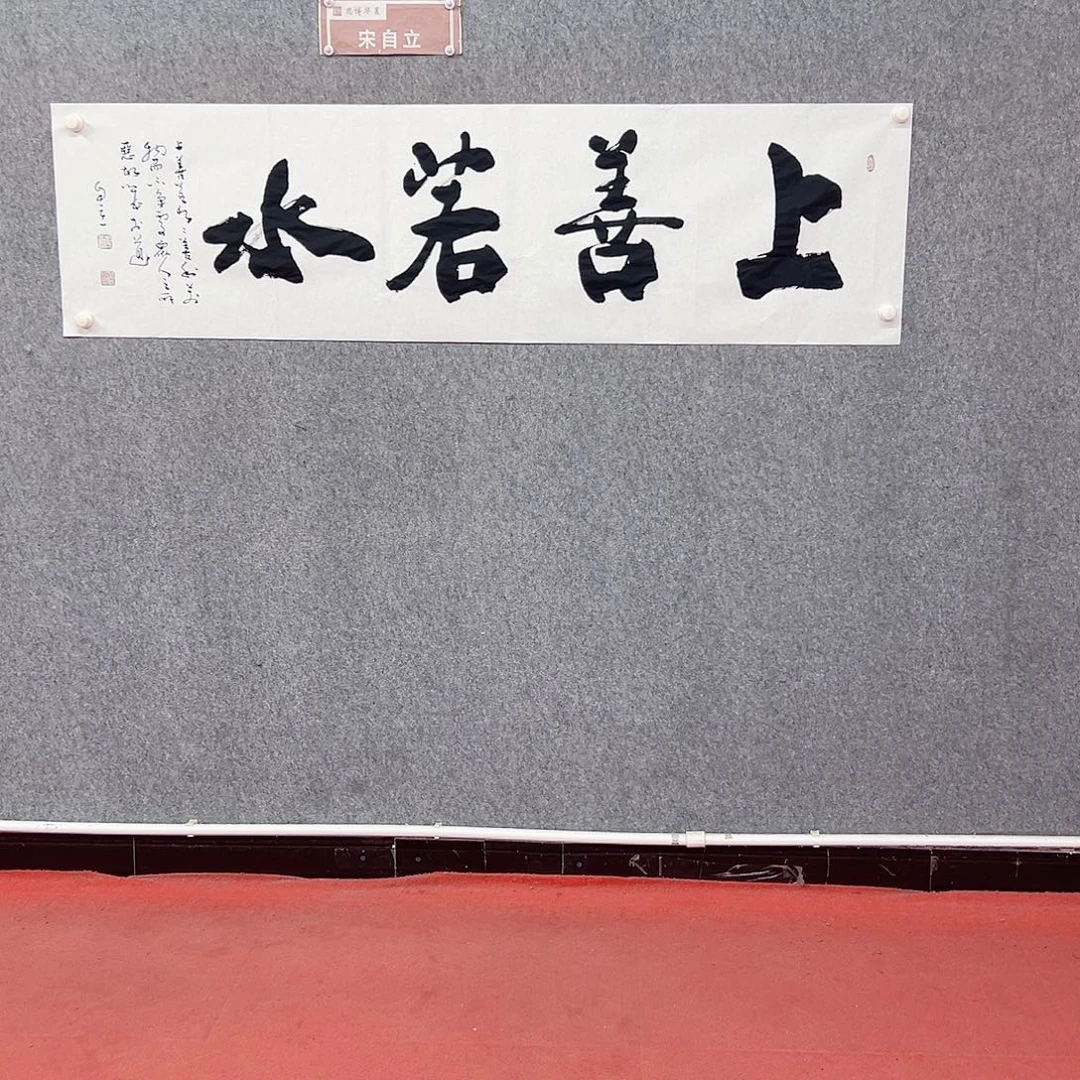 宋自立
上善若水
上善若水水善利万
物而不争处众人之所
恶故几于道
自立